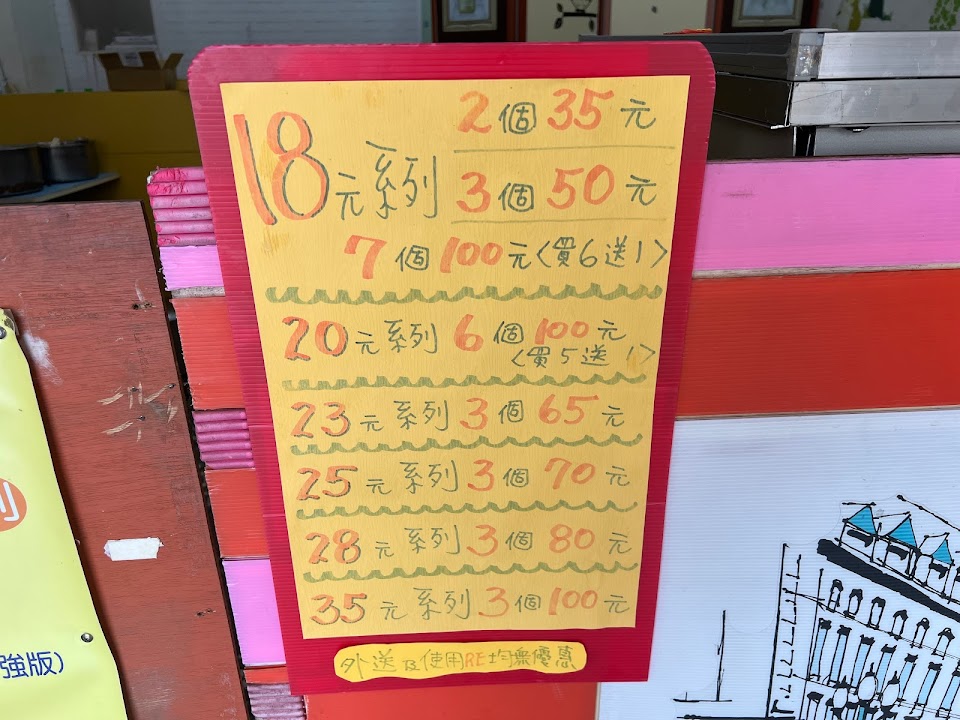 18元系列
2個35元
3個50元
7個100元〈買6送1〉
20元系列6個100元
〈買5送1〉
23元系列3個65元
25元系列3個70元
28元系列3個80元
35元系列3個100元
外送及使用RE均無優惠
列
強版)